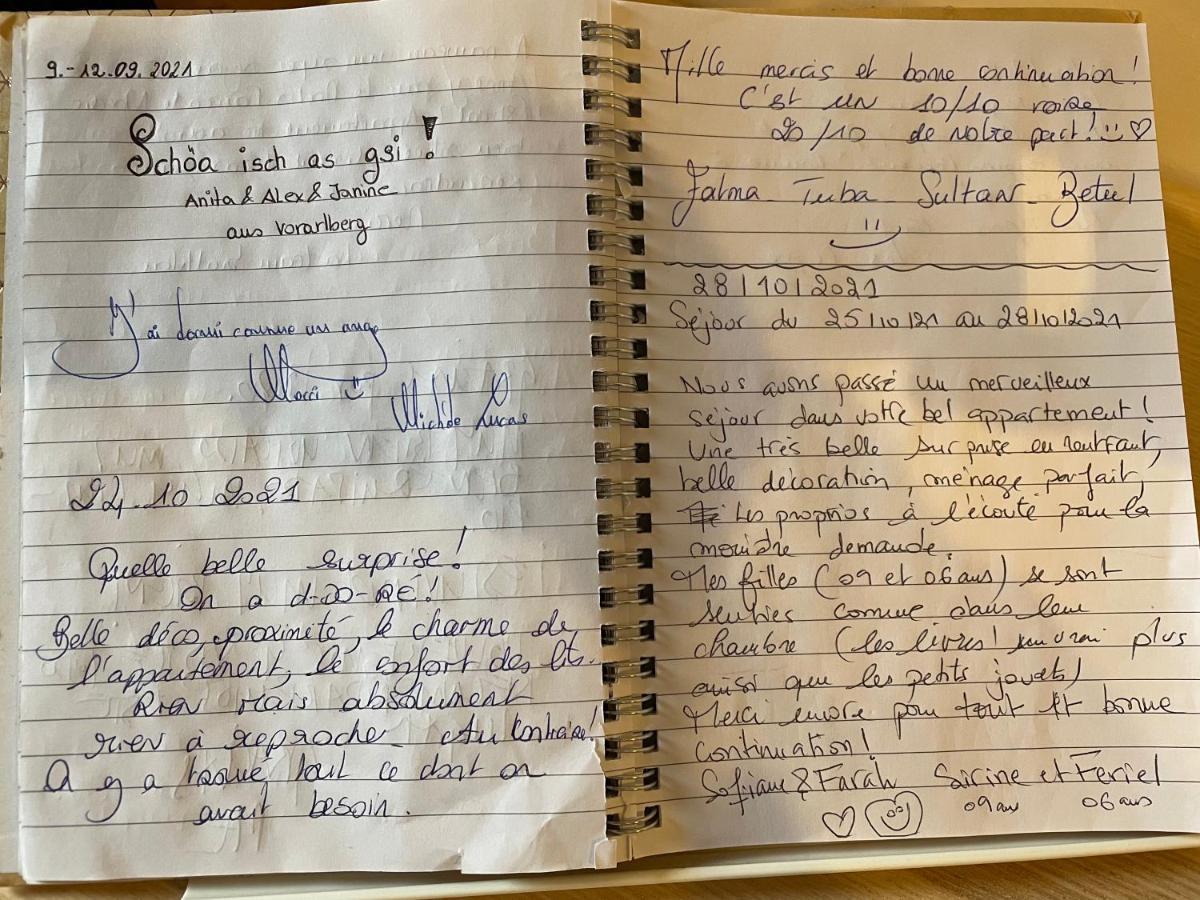 9.-12.09.2021
Schöa isch as gsi!
Anita & Alex & Janine
aus Vorarlberg
J'ai dormi comme un ange
Merci
Michèle Lucas
24.10.2021
Quelle belle surprise!
On a d-DO-RÉ!
Belle déco, proximité, le charme de
l'appartement, le confort des lits.
Rien mais absolument
rien à reproche. Au contraire!
On y a trouvé tout ce dont on
avait besoin.
Mille mercis et bonne continuation!
C'est un 10/10 voire
20/10 de notre part! :) ♡
Tuba - Sultan - Betul
28/10/2021
Séjour du 25/10/21 au 28/10/2021
Nous avons passé un merveilleux
séjour dans votre bel appartement!
Une très belle surprise en rentrant,
belle décoration, ménage parfait,
Les proprios à l'écoute pour la
moindre demande.
Mes filles (09 et 06 ans) se sont
senties comme dans leur
chambre (les livres! un vrai plus
ainsi que les petits jouets)
Merci encore pour tout et bonne
continuation!
Sofiane & Farah Sirine et Feriel
09 ans 06 ans